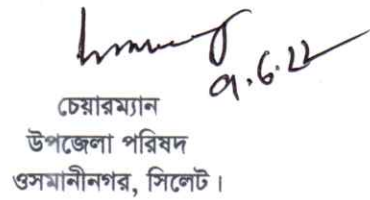 ৭.6.22
চেয়ারম্যান
উপজেলা পরিষদ
ওসমানীনগর, সিলেট।